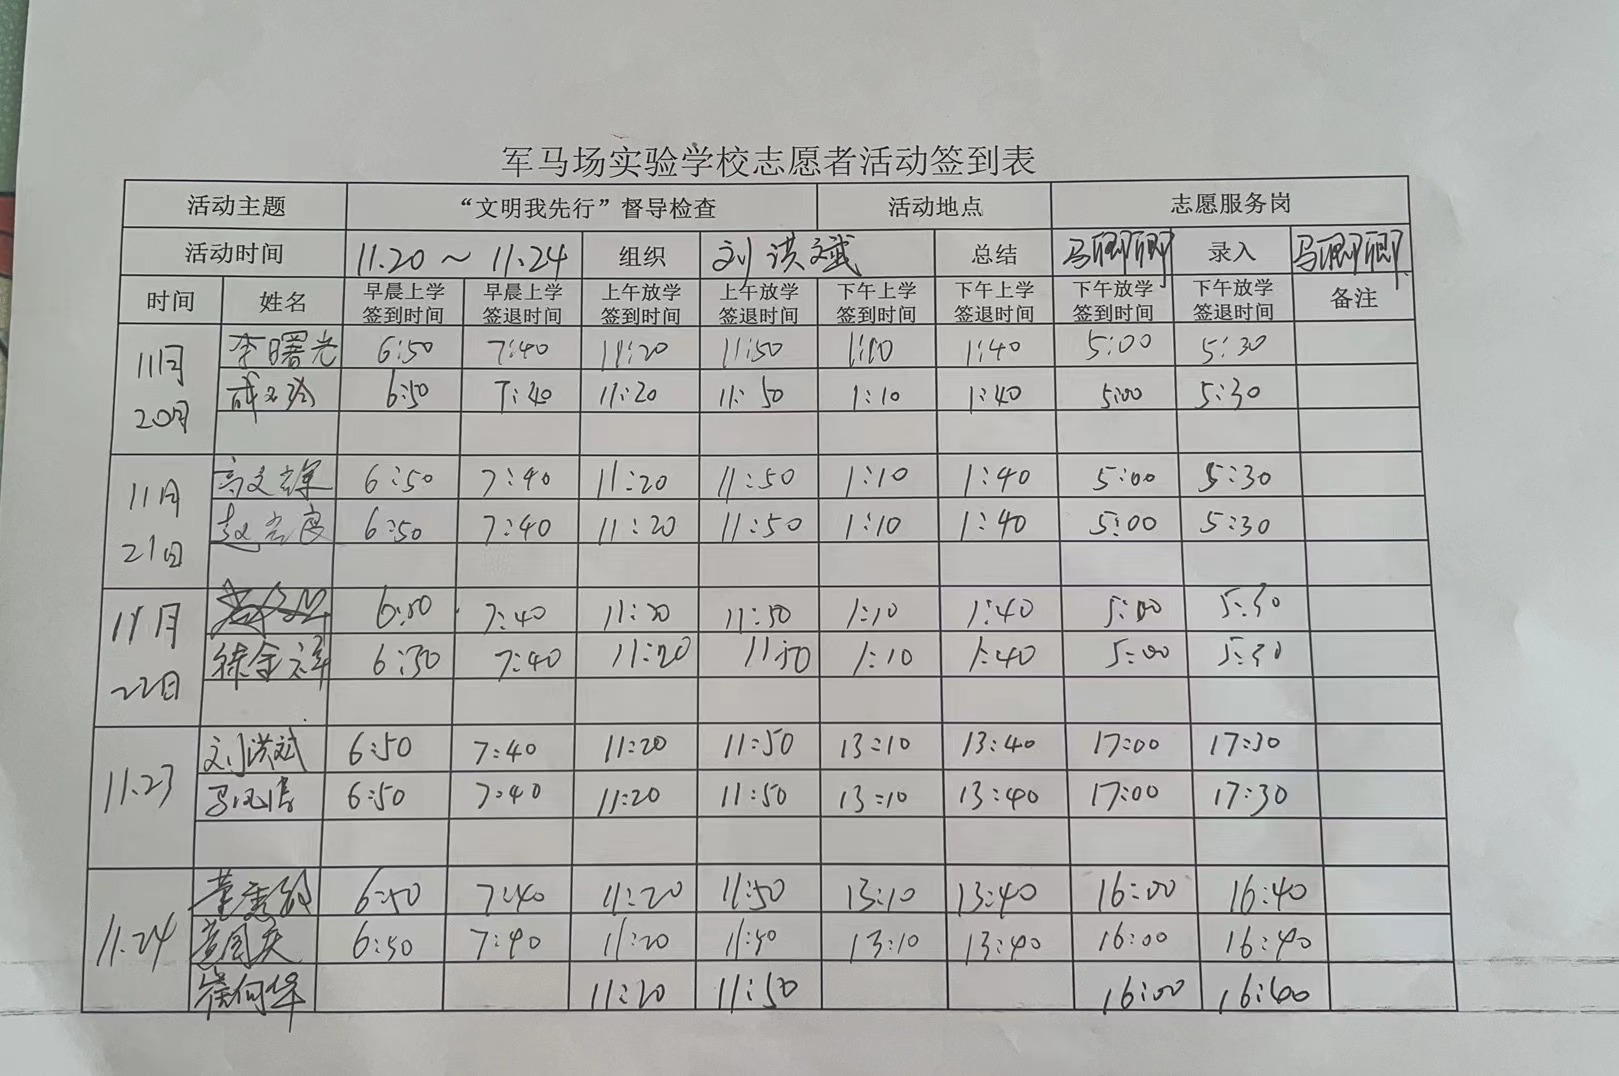 军马场实验学校志愿者活动签到表
活动主题 “文明我先行”督导检查 活动地点 志愿服务岗
活动时间 11.20～11.24 组织 刘洪斌 总结 马卿卿 录入 马卿卿
时间 姓名 早晨上学签到时间 早晨上学签退时间 上午放学签到时间 上午放学签退时间 下午上学签到时间 下午上学签退时间 下午放学签到时间 下午放学签退时间 备注
11月20日 李曙光 6:50 7:40 11:20 11:50 1:10 1:40 5:00 5:30
6:50 7:40 11:20 11:50 1:10 1:40 5:00 5:30
11月21日 6:50 7:40 11:20 11:50 1:10 1:40 5:00 5:30
6:50 7:40 11:20 11:50 1:10 1:40 5:00 5:30
11月22日 6:50 7:40 11:20 11:50 1:10 1:40 5:00 5:30
徐金祥 6:30 7:40 11:20 11:50 1:10 1:40 5:00 5:30
11.23 刘洪斌 6:50 7:40 11:20 11:50 13:10 13:40 17:00 17:30
6:50 7:40 11:20 11:50 13:10 13:40 17:00 17:30
11.24 6:50 7:40 11:20 11:50 13:10 13:40 16:00 16:40
6:50 7:40 11:20 11:50 13:10 13:40 16:00 16:40
11:20 11:50 16:00 16:40